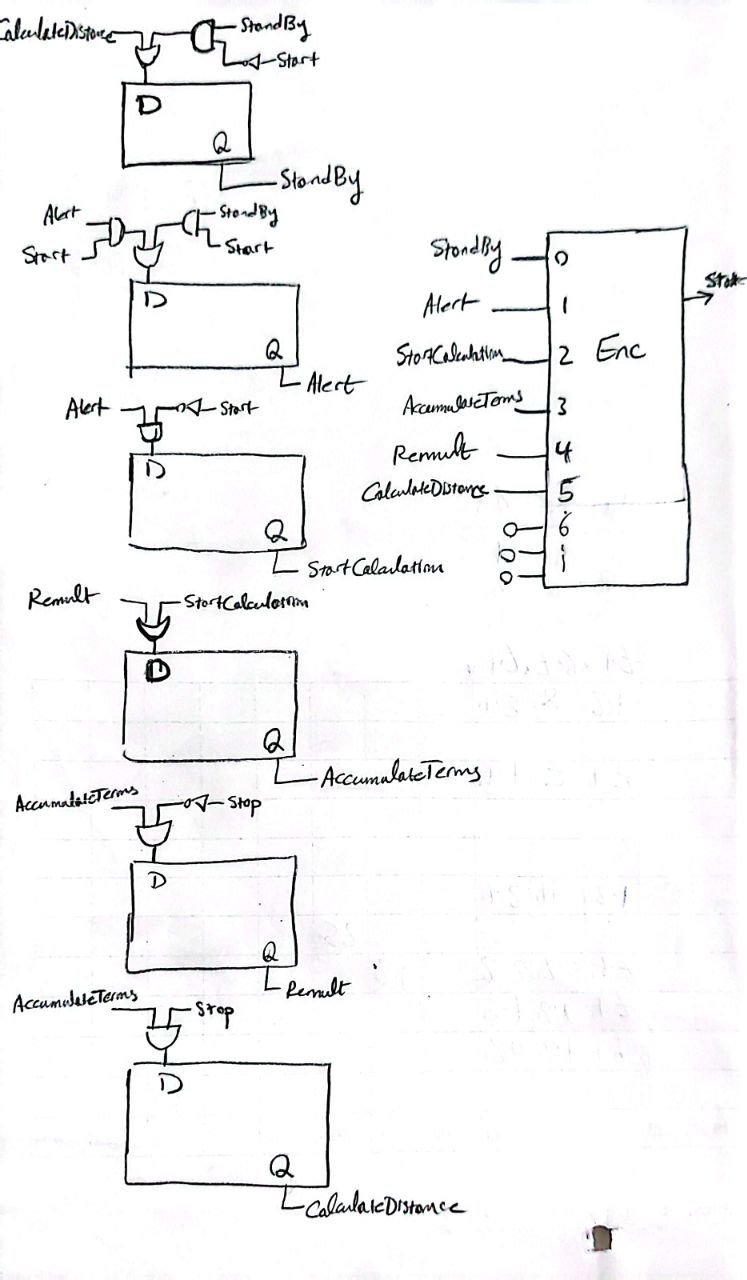 CalculateDistance
StandBy
Start
D
Q
StandBy
Alert
StandBy
Start
Start
D
Q
Alert
Alert
Start
D
Q
StartCalculation
Remult
StartCalculation
D
Q
AccumulateTerms
AccumulateTerms
Stop
D
Q
Remult
AccumulateTerms
Stop
D
Q
CalculateDistance
StandBy 0
State
Alert 1
StartCalculation 2 Enc
AccumulateTerms 3
Remult 4
CalculateDistance 5
6